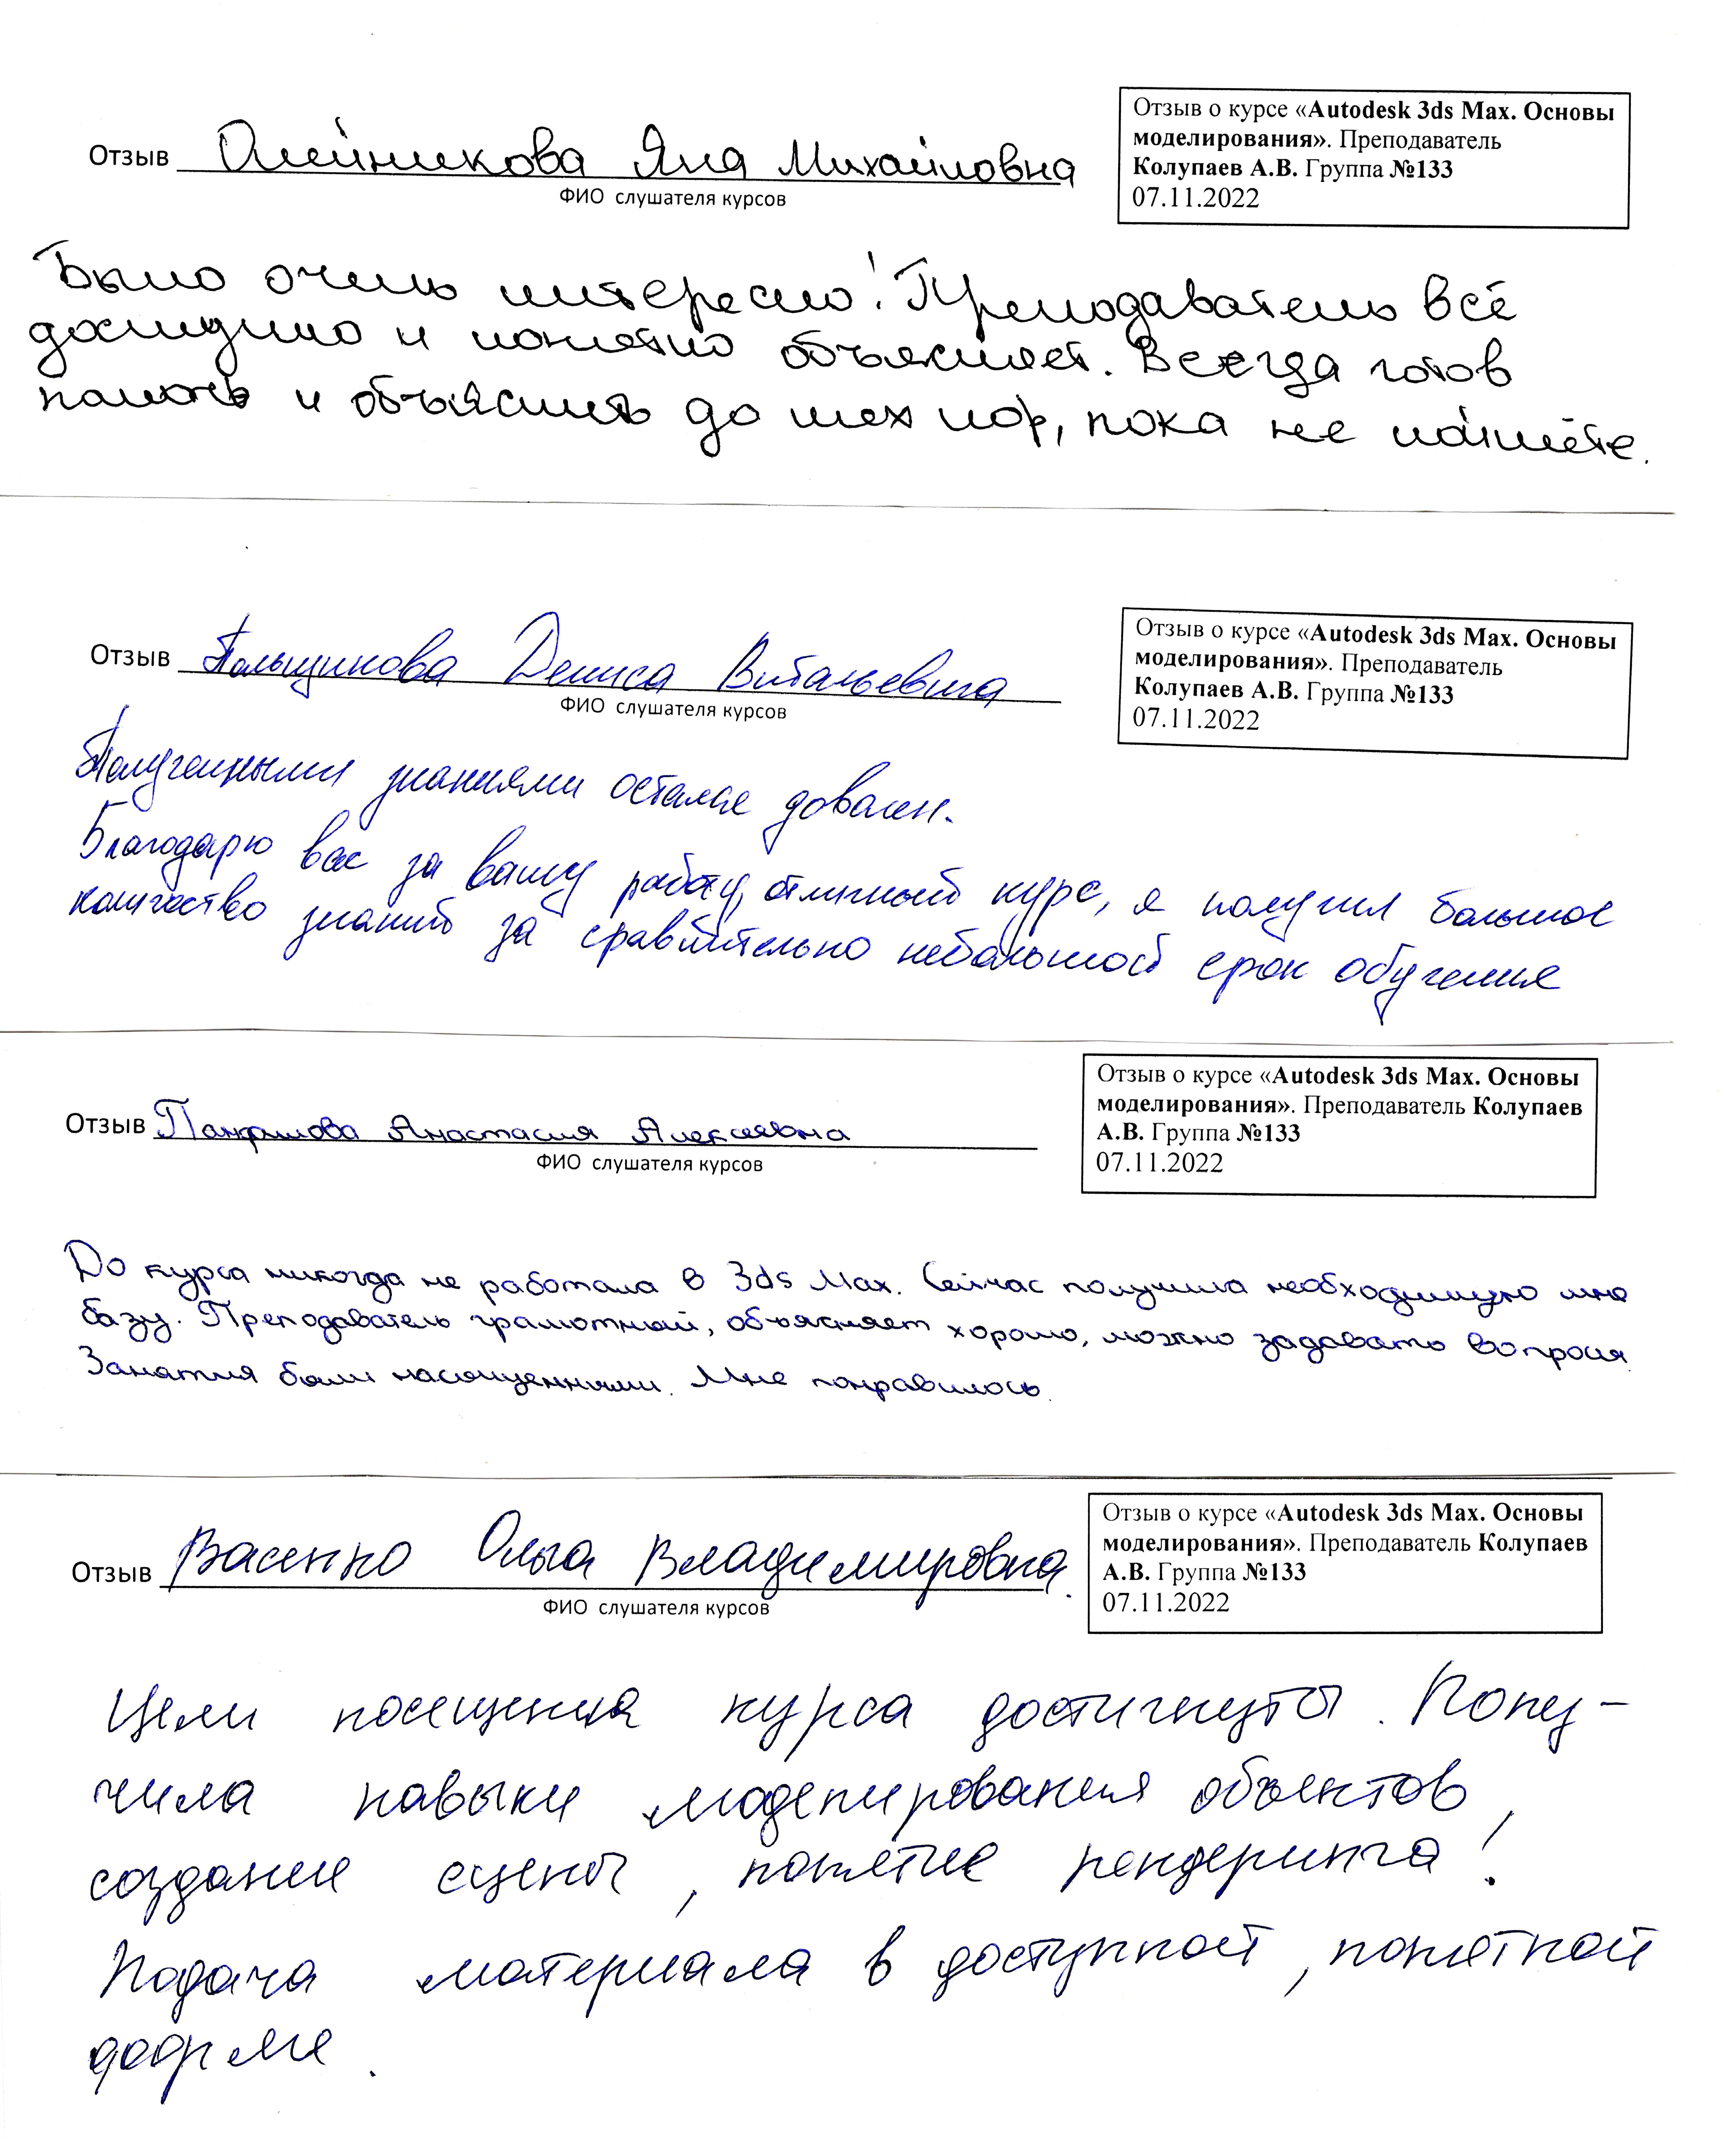 Отзыв о курсе «Autodesk 3ds Max. Основы
моделирования». Преподаватель
Колупаев А.В. Группа №133
07.11.2022
Отзыв Олейникова Яна Михайловна
ФИО слушателя курсов
Было очень интересно! Преподаватель всё
доступно и понятно объясняет. Всегда готов
помочь и объяснить до тех пор, пока не поймёте.
Отзыв о курсе «Autodesk 3ds Max. Основы
моделирования». Преподаватель
Колупаев А.В. Группа №133
07.11.2022
Отзыв Польщикова Дениса Витальевича
ФИО слушателя курсов
Полученными знаниями остался доволен.
Благодарю вас за вашу работу, отличный курс, я получил большое
количество знаний за сравнительно небольшой срок обучения
Отзыв о курсе «Autodesk 3ds Max. Основы
моделирования». Преподаватель Колупаев
А.В. Группа №133
07.11.2022
Отзыв Анастасия Алексеевна
ФИО слушателя курсов
До курса никогда не работала в 3ds Max. Сейчас получила необходимую мне
базу. Преподаватель грамотный, объясняет хорошо, можно задавать вопросы.
Занятия были насыщенными. Мне понравилось.
Отзыв о курсе «Autodesk 3ds Max. Основы
моделирования». Преподаватель Колупаев
А.В. Группа №133
07.11.2022
Отзыв Васенко Ольга Владимировна.
ФИО слушателя курсов
Цели посещения курса достигнуты. Полу-
чила навыки моделирования объектов,
создание сцены, понятие рендеринга!
Подача материала в доступной, понятной
форме.